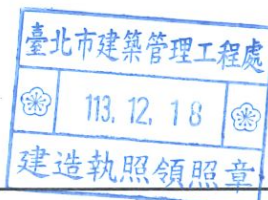 臺北市建築管理工程處
113. 12. 18
建造執照領照章